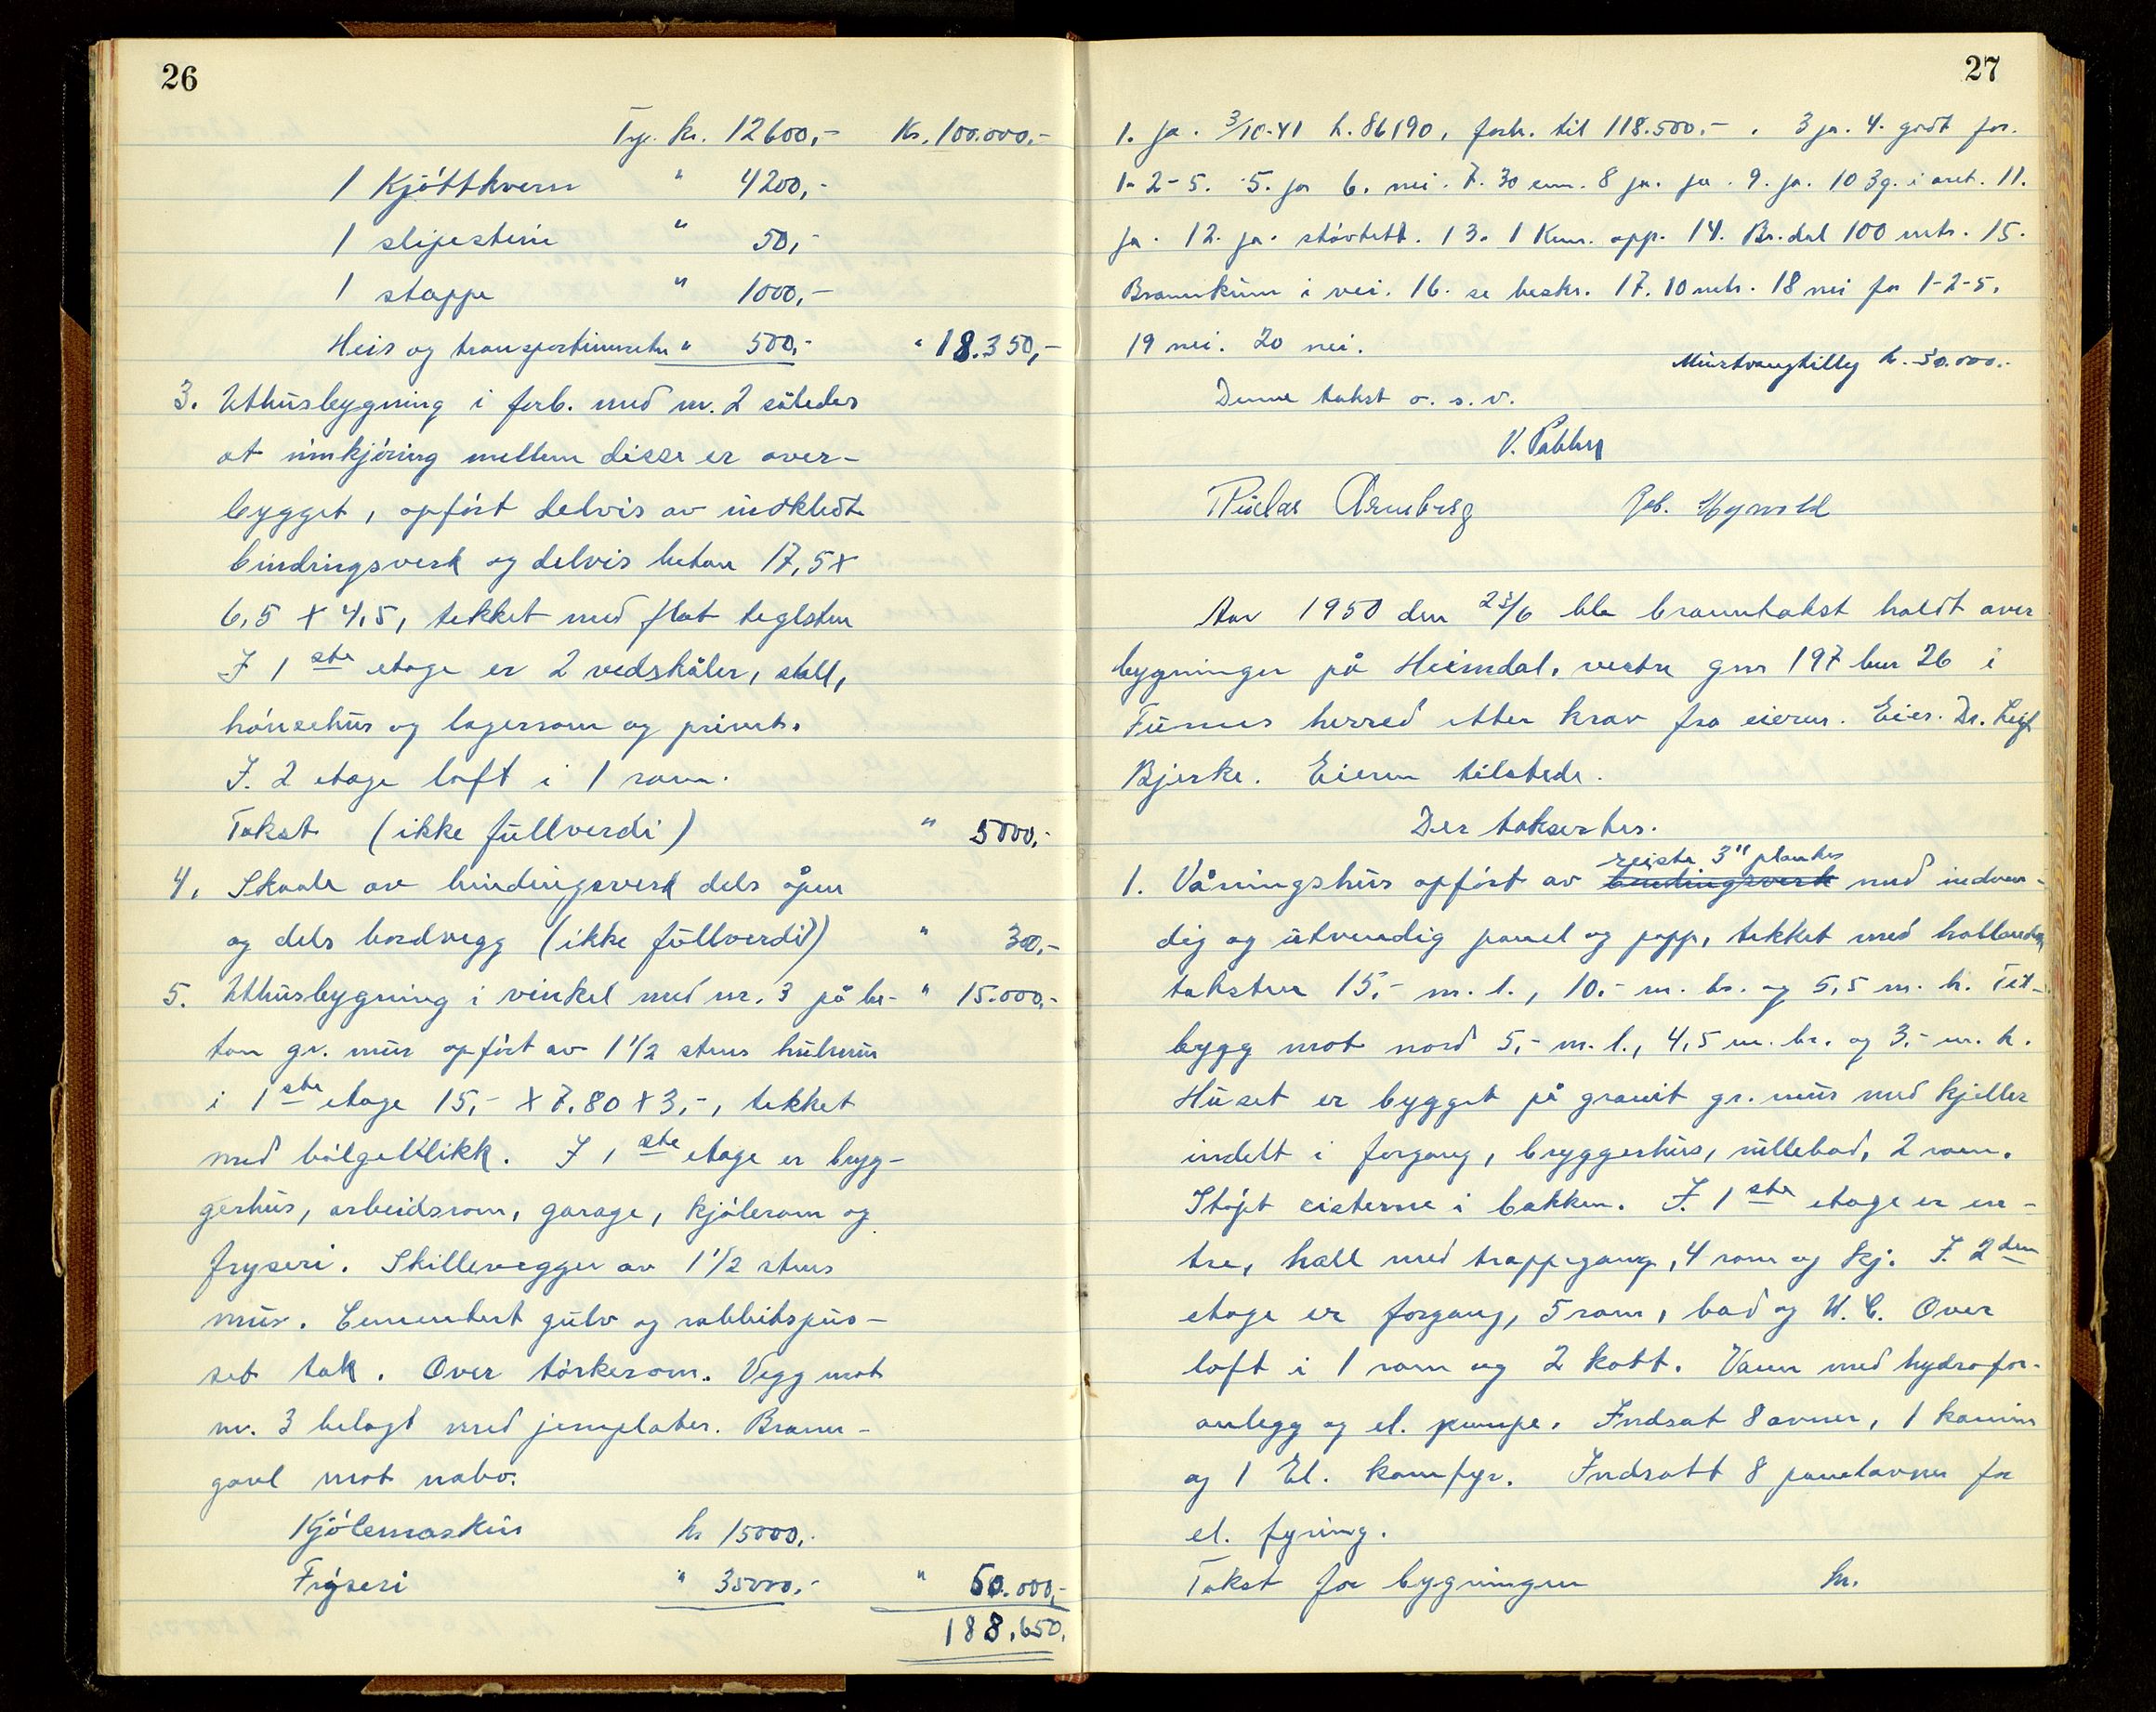 26
Trp. kr. 12600,- Kr. 100.000.-
1 Kjøttkvern " 4200,-
1 slipestein " 50,-
1 stoppe " 1000,-
Heis og transportinnretn " 500,- " 18.350,-
3. Uthusbygning i forb. med nr. 2 således
at innkjøring mellem disse er over-
bygget, opført delvis av utkledt
bindingsverk og delvis beton 17,5 x
6,5 x 4,5, tekket med flat teglsten
I 1ste etage er 2 vedskåler, stall,
hønsehus og lagerrom og privet.
I. 2 etage loft i 1 rom.
Takst (ikke fullverdi) " 5000,-
4. Skaale av bindingsverk dels åpen
og dels bordvegg (ikke fullverdi) " 300,-
5. Uthusbygning i vinkel med nr. 3 på be- " 15.000,-
ton gr. mur opført av 1 1/2 stens hulmur
i 1ste etage 15,- x 7,80 x 3,-, tekket
med bølgeblikk. I 1ste etage er bryg-
gerhus, arbeidsrom, garage, kjølerom og
fryseri. Skillevegger av 1 1/2 stens
mur. Cementert gulv og rabbitspus-
set tak. Over tørkerom. Vegg mot
nr. 3 belagt med jernplater. Brann-
gavl mot nabo.
Kjølemaskin kr 15000,-
Fryseri " 35000,- " 50.000,-
188.650,
27
1. ja. 3/10-41 k. 86190, forh. til 118.500.-. 3 ja. 4. godt for
1-2-5. 5. ja 6. nei. 7. 30 cm. 8 ja. ja. 9. ja. 10 3 g. i året. 11.
ja. 12. ja. støvtett. 13. 1 Km. opp. 14. Br.dal 100 mtr. 15.
Brannkum i vei. 16. se beskr. 17. 10 mtr. 18 nei for 1-2-5.
19 nei. 20 nei.
Murtvangtillegg k. 50.000.-
Denne takst o. s. v.
V.
Aar 1950 den 23/6 ble branntakst holdt over
bygninger på Heimdal, vestre gnr 197 bnr 26 i
Furnes herred etter krav fra eieren. Eier. Dr. Leif
Bjerke. Eieren tilstede.
Der taksertes.
reiste 3" planker
1. Våningshus opført av bindingsverk med indven-
dig og utvendig panel og papp, tekket med hollandsk
taksten 15,- m. l., 10,- m. br. og 5,5 m. h. Til-
bygg mot nord 5,- m. l., 4,5 m. br. og 3,- m. h.
Huset er bygget på granit gr. mur med kjeller
indelt i forgang, bryggerhus, rullebod, 2 rom.
Støpt cisterne i bakken. I. 1ste etage er en-
tre, hall med trappegang, 4 rom og kj. I. 2den
etage er forgang, 5 rom, bad og W. C. Over
loft i 1 rom og 2 kott. Vann med hydrofor-
anlegg og el. pumpe. Indsat 8 ovner, 1 kamin
og 1 El. komfyr. Indsatt 8 panelovner for
el. fyring.
Takst for bygningen kr.